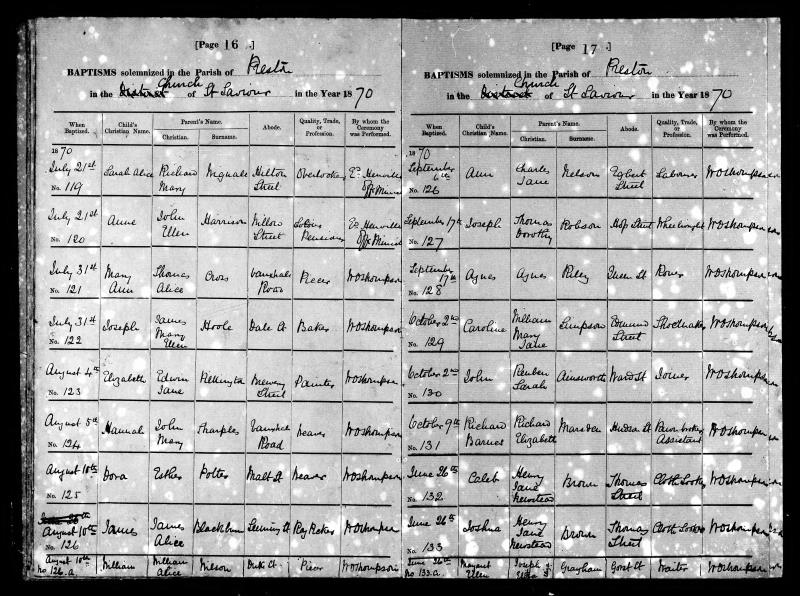 [Page 16.]
BAPTISMS solemnized in the Parish of Preston
in the District Church of St Saviour in the Year 1870
When Baptized. Child's Christian Name. Parent's Name. Christian. Surname. Abode. Quality, Trade, or Profession. By whom the Ceremony was Performed.
1870
July 21st Sarah Alice Richard Mary Hilton Street Overlooker
No. 119
July 21st Anne John Ellen Harrison Willow Street Pensioner
No. 120
July 31st Mary Ann Thomas Alice Cross Vauxhall Road Piecer WO Thompson
No. 121
July 31st Joseph James Mary Ellen Hoole Dale St Baker WO Thompson
No. 122
August 4th Elizabeth Edwin Jane Street Painter WO Thompson
No. 123
August 5th Hannah John Mary Sharples Vauxhall Road Weaver WO Thompson
No. 124
August 10th Dora Esther Potter Malt St Weaver WO Thompson
No. 125
August 10th James James Alice Blackburn Leeming St WO Thompson
No. 126
August 10th William William Alice Wilson Duke St WO Thompson
No 126.a
[Page 17.]
BAPTISMS solemnized in the Parish of Preston
in the District Church of St Saviour in the Year 1870
When Baptized. Child's Christian Name. Parent's Name. Christian. Surname. Abode. Quality, Trade, or Profession. By whom the Ceremony was Performed.
1870
September 6th Ann Charles Jane Nelson Egbert Street Labourer WO Thompson
No. 126
September 17th Joseph Thomas Dorothy Robson Hop Street Wheelwright WO Thompson
No. 127
September 17th Agnes Agnes Riley Queen St Rover WO Thompson
No. 128
October 2nd Caroline William Mary Jane Simpson Edmund Street Shoemaker WO Thompson
No. 129
October 2nd John Reuben Sarah Ainsworth Ward St Joiner WO Thompson
No. 130
October 9th Richard Barnes Richard Elizabeth Marsden Hudson St Pawnbroker Assistant WO Thompson
No. 131
June 26th Caleb Henry Jane Newstead Brown Thomas Street Cloth Looker WO Thompson
No. 132
June 26th Joshua Henry Jane Newstead Brown Thomas Street Cloth Looker WO Thompson
No. 133
June 26th Margaret Ellen Joseph Grayham Gorst St Waiter WO Thompson
No. 133.a